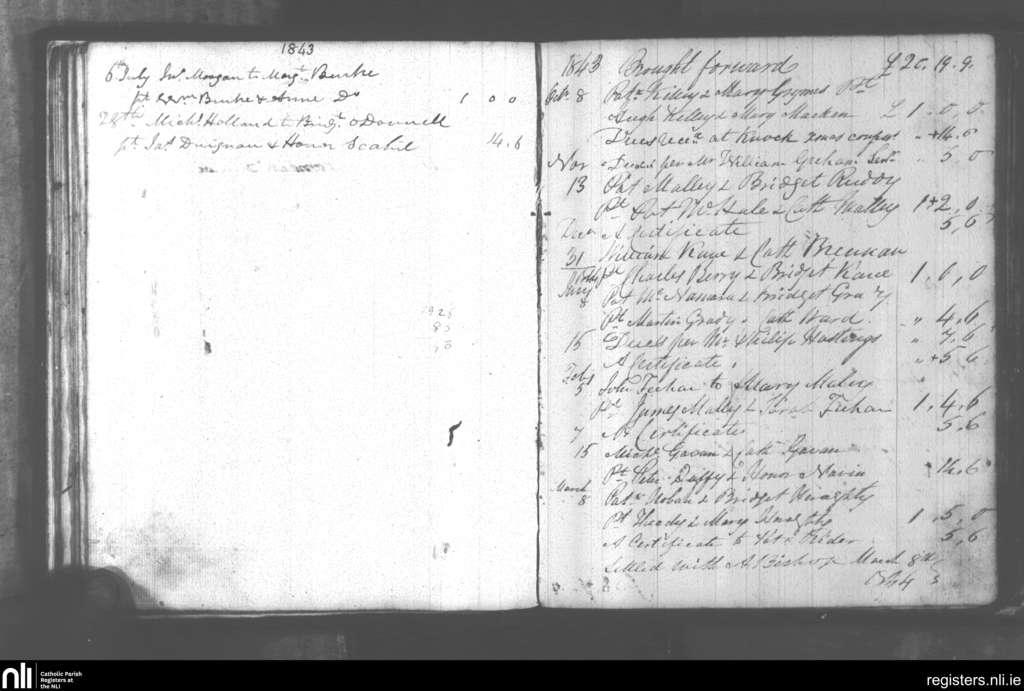 1843
6th July Jno. Morgan to Margt. Burke
pt Wm Burke & Anne Do 1 0 0
28th Michl. Holland to Bridgt. O Donnell
pt. Jas Duignan & Honor Scahil 14.6
1843 Brought forward £20.19.9.
8 Patk. Killey & Mary Grymes Pt
Hugh Kelley & Mary Macken £1.0,0
Dues at Knock xmas 14.6
Nov Dues per Mr William Graham 5.0
13 Pat Malley & Bridget Ruddy
Pt Pat McHale & Cath Malley 1+2,0
Decr A Certificate 5,6
31 William Kane & Cath Brennan
Pt Charles Berry & Bridget Kane 1,0,0
1844 Jany 8 Pat McNamara & Bridget Grady
Pt. Martin Grady & Cath Ward. 4.6
15 Dues per Mr Philip Hastings 7.6
A Certificate, +5.6
Feby 5 John Feehan to Mary Malley
Pt. James Malley & Feehan 1.4.6
7 A Certificate 5.6
15 Michl. Gavan & Cath Gavan
Pt Peter Duffy & Honor Navin 14.6
March 8 Patk. Hoban & Bridget Heraghty
Pt Thady & Mary 1.5,0
A Certificate to Pat 5,6
Settled with A.Bishop March 8th
1844
nli
Catholic Parish
Registers at
the NLI
registers.nli.ie